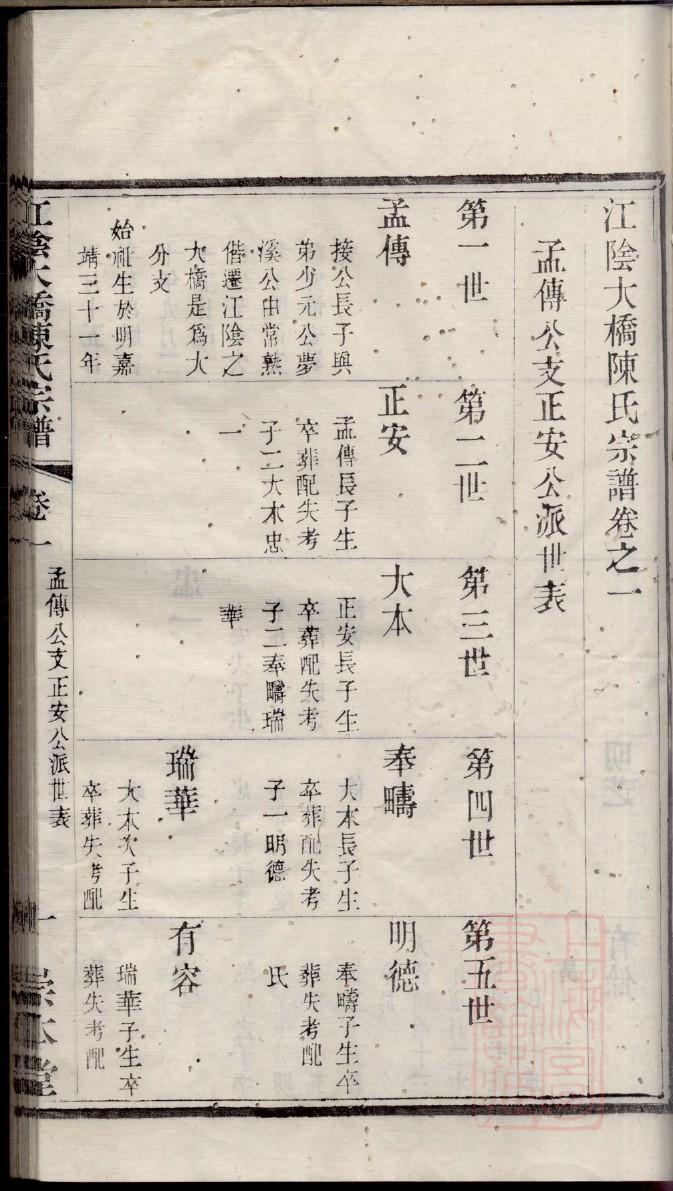 江陰大橋陳氏宗譜卷之一
孟傳公支正安公派世表
第一世
第二世
第三世
第四世
第五世
孟傳
接公長子與
弟少元公夢
溪公由常熟
偕遷江陰之
大橋是爲大
分支
始祉生於明嘉
靖三十一年
正安
孟傳長子生
卒葬配失考
子二大本忠
一
大本
正安長子生
卒葬配失考
子二奉疇瑞
華
奉疇
大本長子生
卒葬配失考
子一明德
瑞華
大本次子生
卒葬失考配
明德
奉疇子生卒
葬失考配
氏
有容
瑞華子生卒
葬失考配
江陰大橋陳氏宗譜
卷一
孟傳公支正安公派世表
一